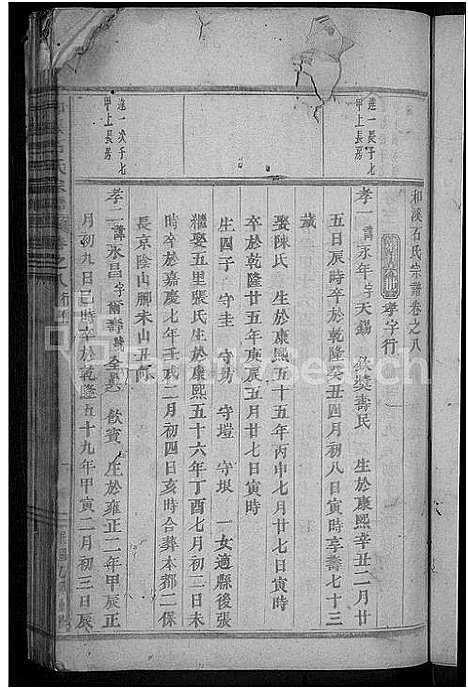 和溪石氏宗譜卷之八
孝字行
進一長子七
甲上長房
孝一諱永年字天錫 欽奬壽民 生於康熙辛丑二月廿
五日辰時卒於乾隆癸丑四月初八日辰時享壽七十三
歲
娶陳氏 生於康熙五十五年丙申七月廿七日寅時
卒於乾隆廿五年庚辰五月廿七日寅時
生四子 守圭 守坊 守塏 守垠 一女適縣後張
繼娶五里張氏 生於康熙五十六年丁酉七月初二日未
時卒於嘉慶七年壬戌二月初四日亥時合葬本都二保
長京陰山脚未山丑向
進一次子七
甲上長房
孝二諱永昌字爾壽 欽賓 生於雍正二年甲辰正
月初九日巳時卒於乾隆五十九年甲寅二月初三日辰